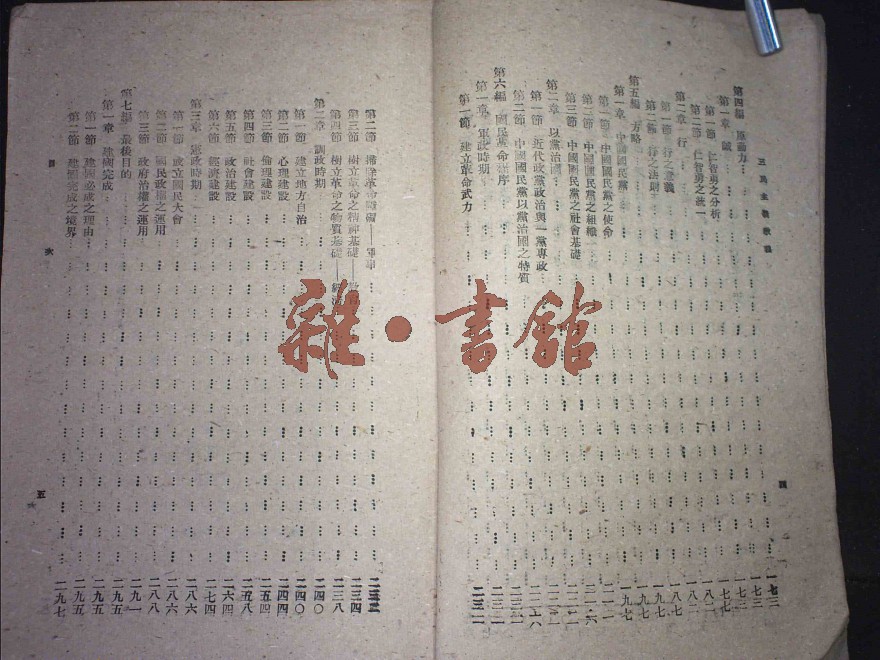 三民主義教程
第四編 原動力 一七三
第一章 誠 一七三
第一節 仁智勇之分析 一七七
第二節 仁智勇之統一 一八二
第二章 行 一八二
第一節 行之意義
第二節 行之法則
第五編 方略 一九七
第一章 中國國民黨 一九七
第一節 中國國民黨之使命
第二節 中國國民黨之組織
第三節 中國國民黨之社會基礎
第二章 以黨治國
第一節 近代政黨政治與一黨專政
第二節 中國國民黨以黨治國之特質
第六編 國民革命程序
第一章 軍政時期
第一節 建立革命武力
四
第二節 掃除革命障礙——軍事
第三節 樹立革命之精神基礎 二三四
第四節 樹立革命之物質基礎 二三八
第二章 訓政時期 二四〇
第一節 建立地方自治 二四〇
第二節 心理建設 二四四
第三節 倫理建設 二五四
第四節 社會建設 二五八
第五節 政治建設 二六四
第六節 經濟建設 二七四
第三章 憲政時期 二八六
第一節 成立國民大會 二八六
第二節 國民政權之運用 二八八
第三節 政府治權之運用 二九一
第七編 最後目的 二九五
第一章 建國完成 二九五
第一節 建國必成之理由 二九五
第二節 建國完成之境界 二九七
目次
五
雜·書館